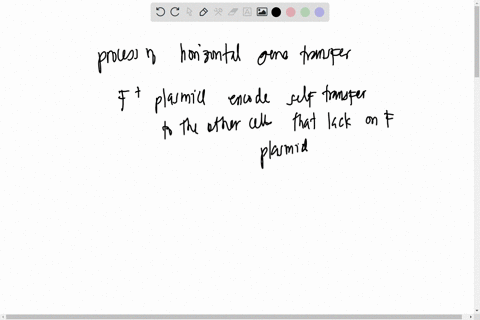 process of horizontal gene transfer
F+ plasmid encode self transfer
to the other cells that lack an F
plasmid